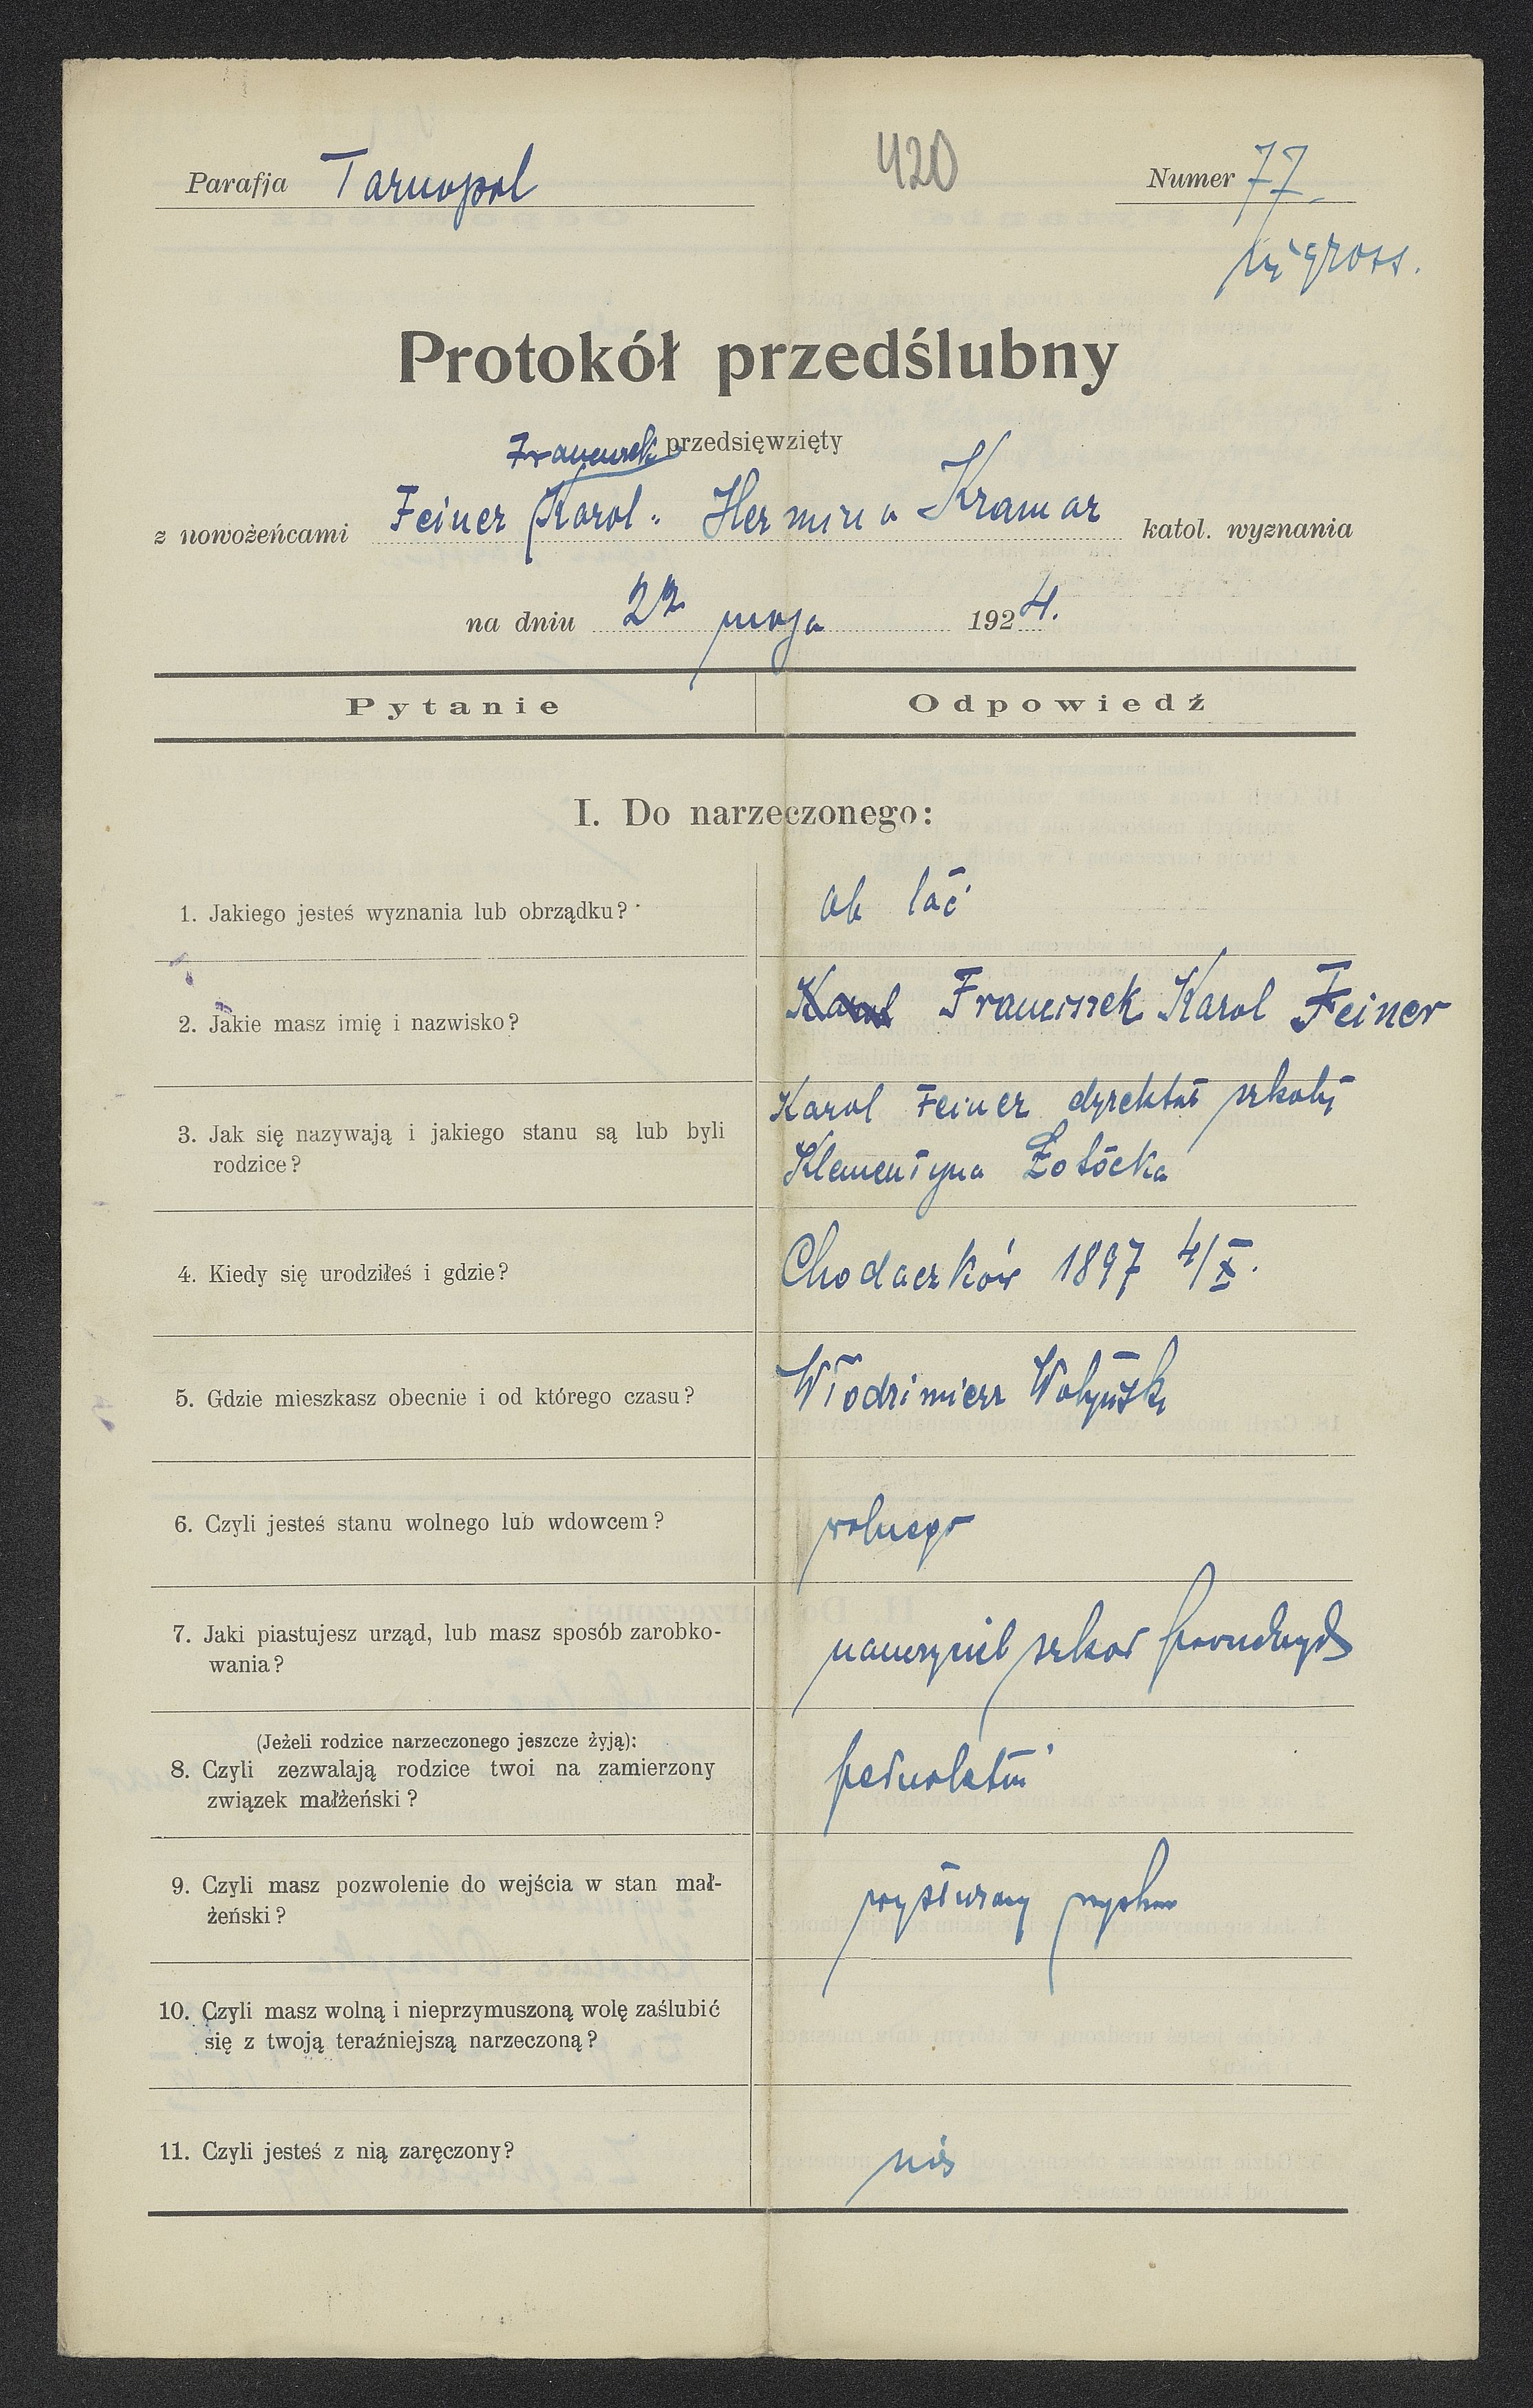 Parafja Tarnopol
420
Numer 77.
ingross.
Protokół przedślubny
przedsięwzięty
Franciszek
z nowożeńcami Feiner Karol. Hermina Kramar katol. wyznania
na dniu 22 maja 1924.
Pytanie Odpowiedź
I. Do narzeczonego:
1. Jakiego jesteś wyznania lub obrządku? ob łać
2. Jakie masz imię i nazwisko? Karol Franciszek Karol Feiner
3. Jak się nazywają i jakiego stanu są lub byli
rodzice?
Karol Feiner dyrektor szkoły
Klementyna Żołócka
4. Kiedy się urodziłeś i gdzie? Chodaczków 1897 4/X.
5. Gdzie mieszkasz obecnie i od którego czasu? Włodzimierz Wołyński
6. Czyli jesteś stanu wolnego lub wdowcem? wolnego
7. Jaki piastujesz urząd, lub masz sposób zarobko-
wania?
nauczyciel szkół
(Jeżeli rodzice narzeczonego jeszcze żyją):
8. Czyli zezwalają rodzice twoi na zamierzony
związek małżeński?
pełnoletni
9. Czyli masz pozwolenie do wejścia w stan mał-
żeński?
10. Czyli masz wolną i nieprzymuszoną wolę zaślubić
się z twoją teraźniejszą narzeczoną?
11. Czyli jesteś z nią zaręczony?
nie